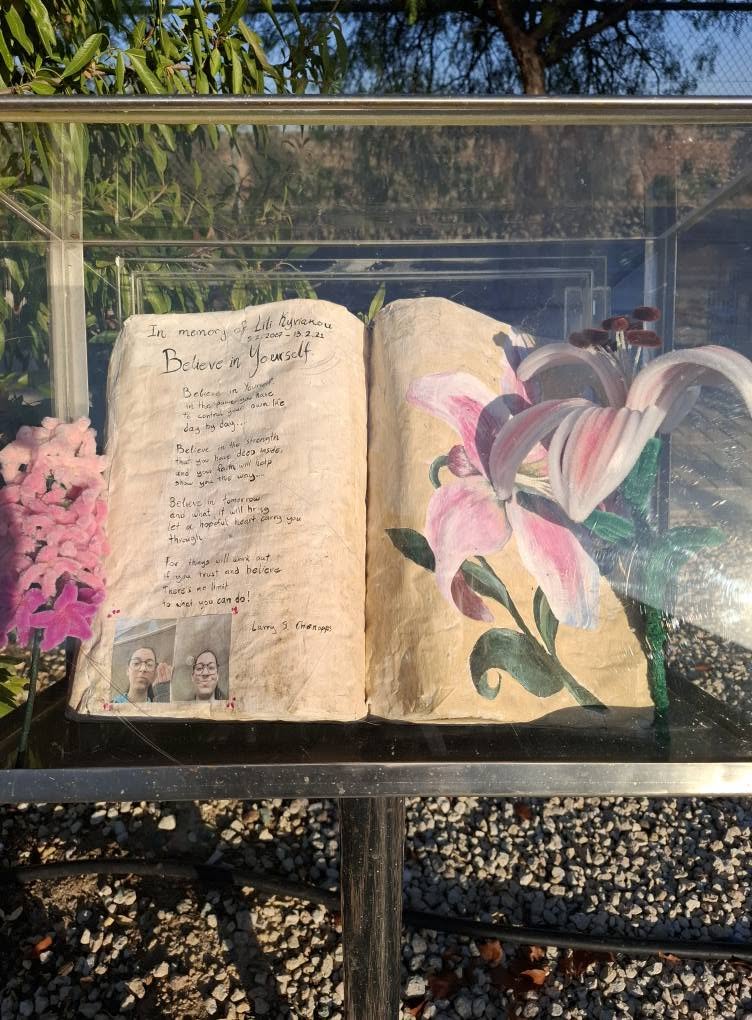 In memory of Lili Kyriakou
2007 - 13.2.21
Believe in Yourself
Believe in Yourself
in the power you have
to control your own life
day by day...
Believe in the strength
that you have deep inside,
and your faith will help
show you the way...
Believe in tomorrow
and what it will bring
let a hopeful heart carry you
through.
For things will work out
if you trust and believe
there's no limit
to what you can do!
Larry S. Chengges